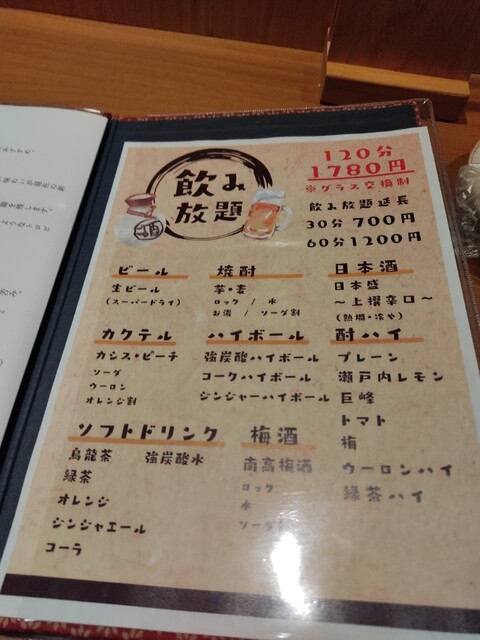 飲み
放題
酒
120分
1780円
※グラス交換制
飲み放題延長
30分 700円
60分 1200円
ビール
生ビール
(スーパードライ)
焼酎
芋・麦
ロック / 水
お湯 / ソーダ割
日本酒
日本盛
〜上撰辛口〜
(熱燗・冷や)
カクテル
カシス・ピーチ
ソーダ
ウーロン
オレンジ割
ハイボール
強炭酸ハイボール
コークハイボール
ジンジャーハイボール
酎ハイ
プレーン
瀬戸内レモン
巨峰
トマト
梅
ウーロンハイ
緑茶ハイ
ソフトドリンク
烏龍茶 強炭酸水
緑茶
オレンジ
ジンジャエール
コーラ
梅酒
南高梅酒
ロック
水
ソーダ